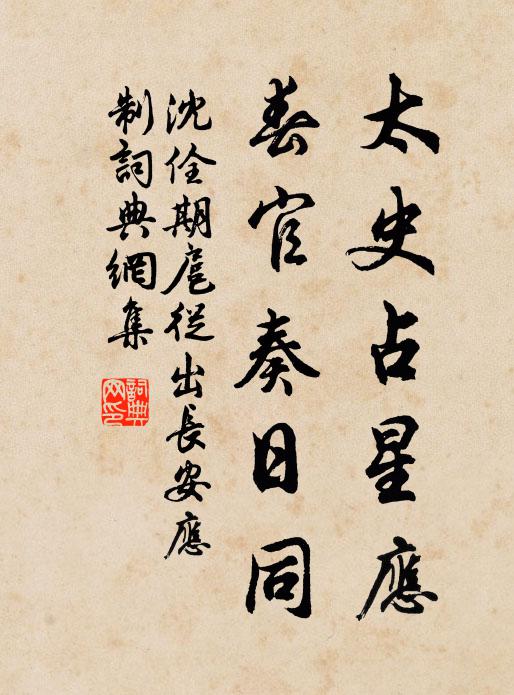 太史占星應
春官奏日同
沈佺期扈從出長安應
制詞典網集
詞典
网印